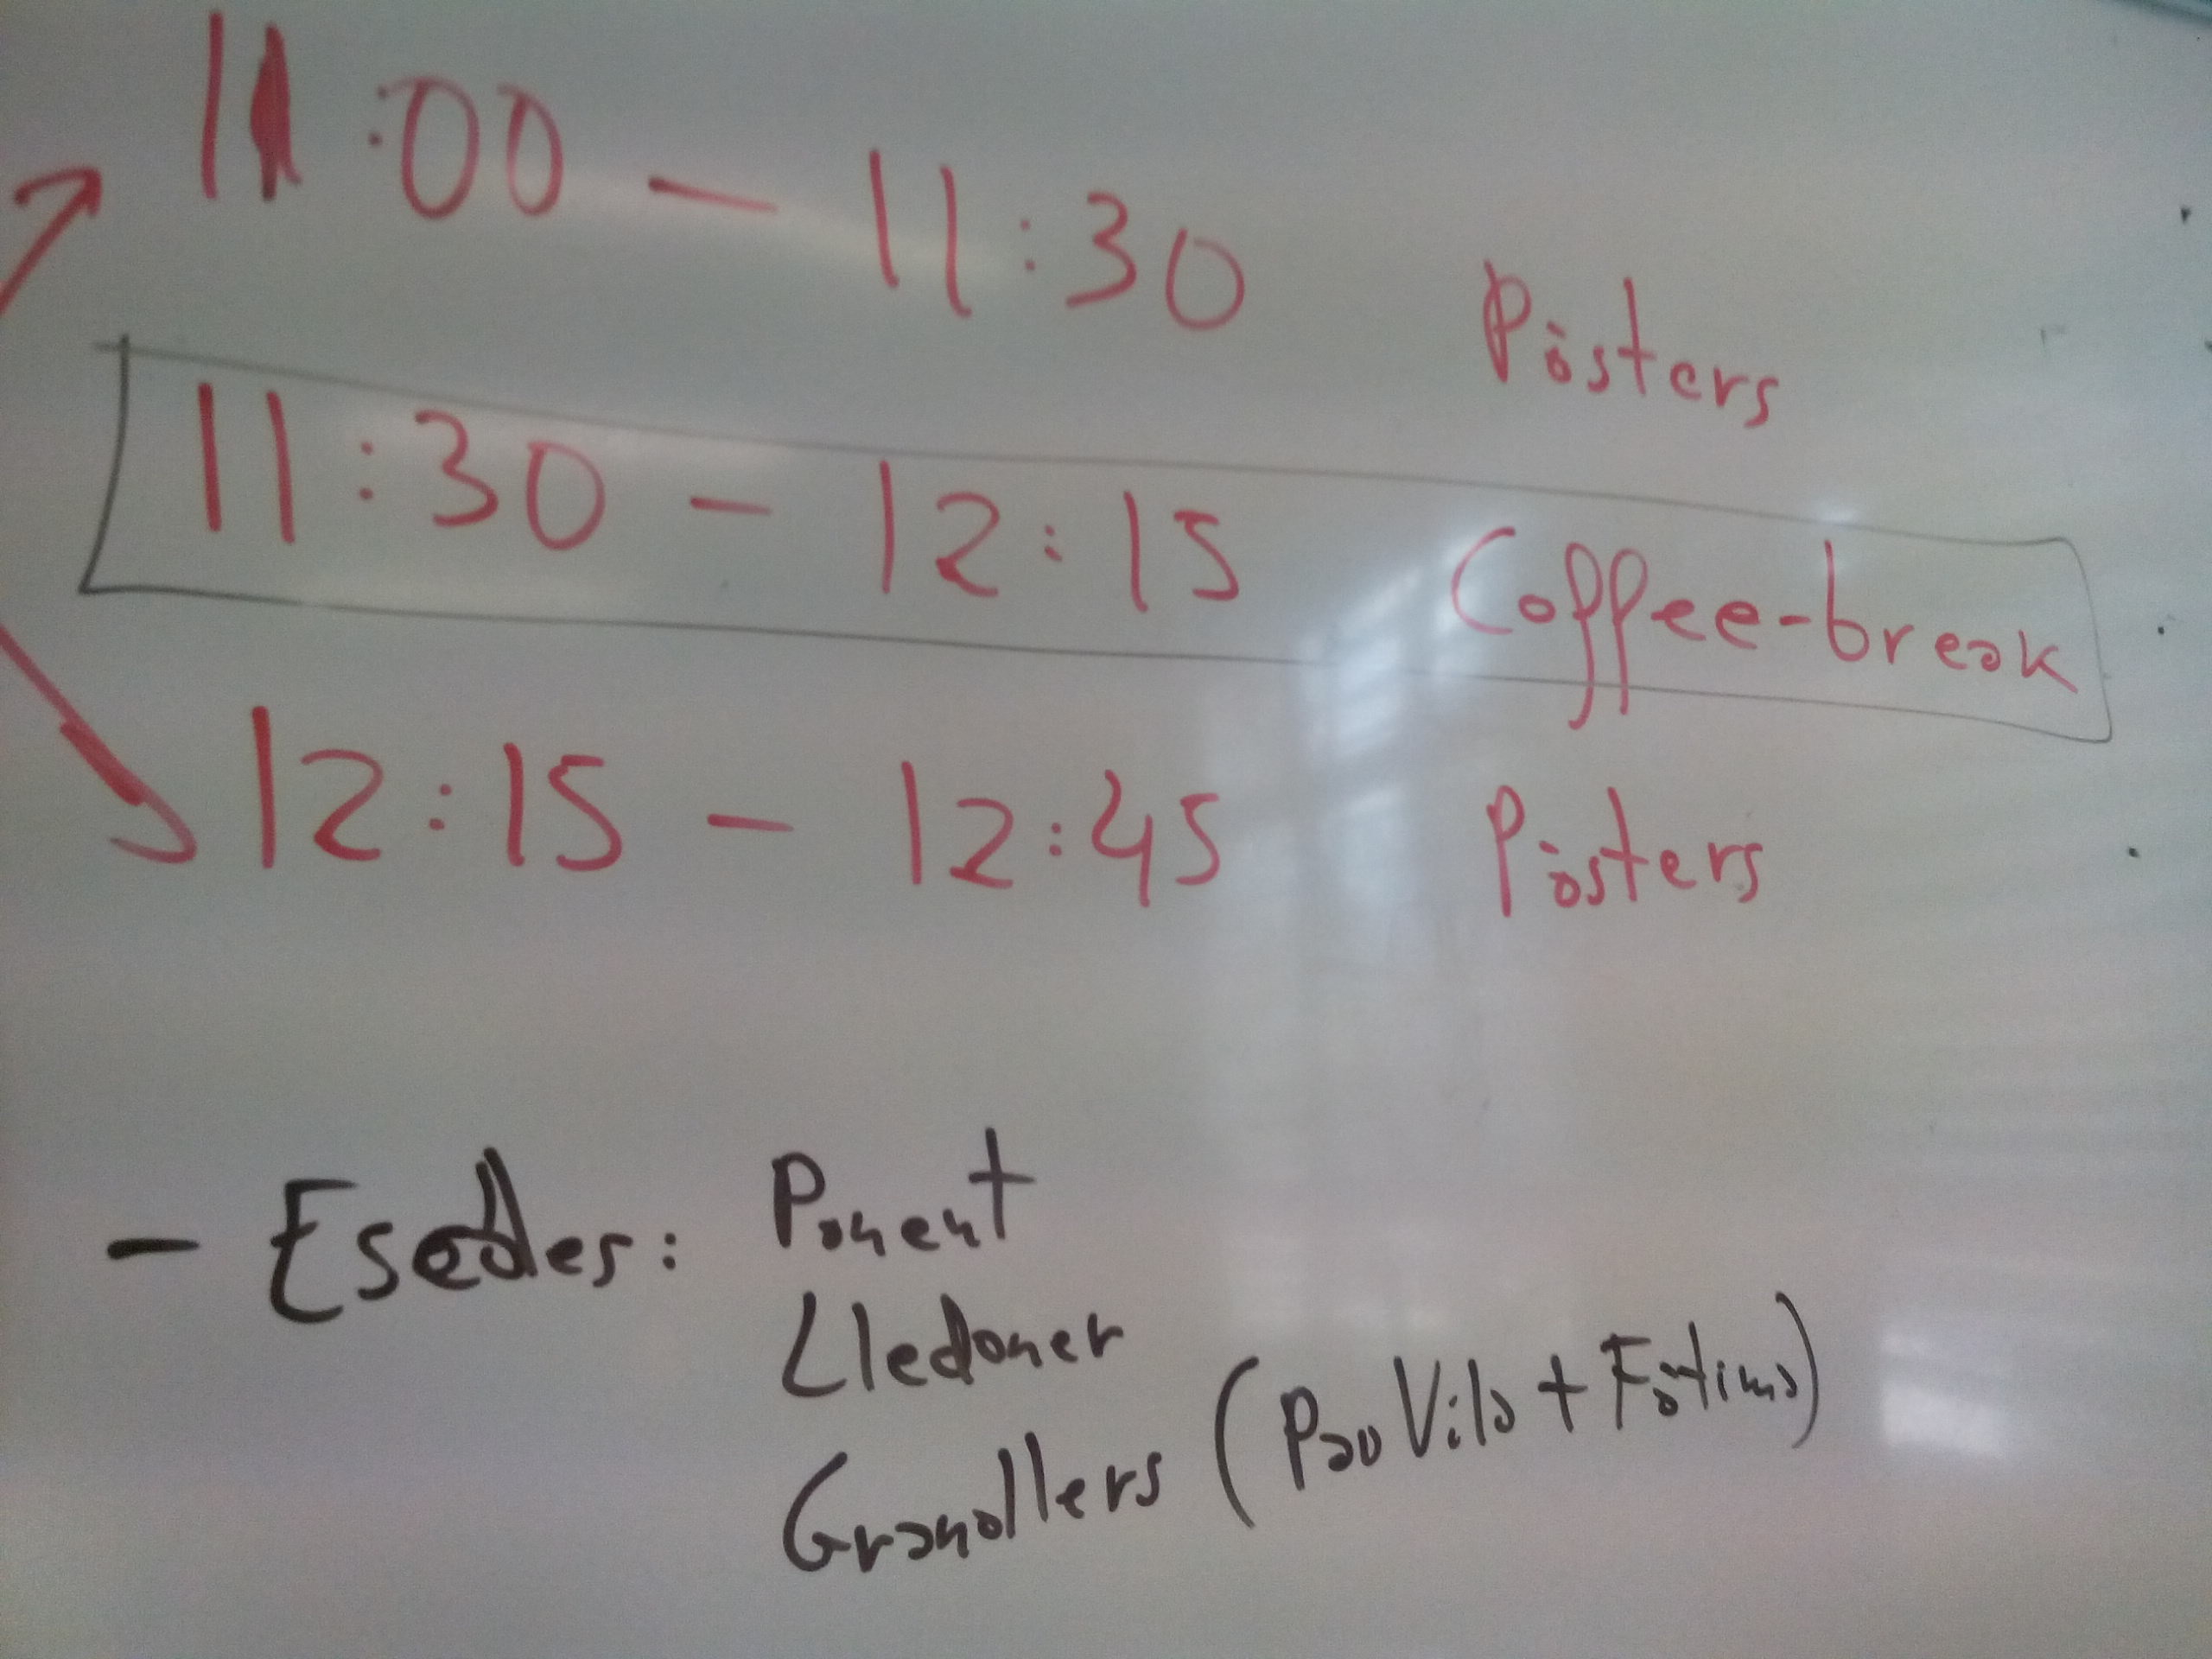 11:00 - 11:30 Pòsters
11:30 - 12:15 Coffee-break
12:15 - 12:45 Pòsters
- Esades: Ponent
Lledoner
Granollers (Pau Vila + Fàtima)